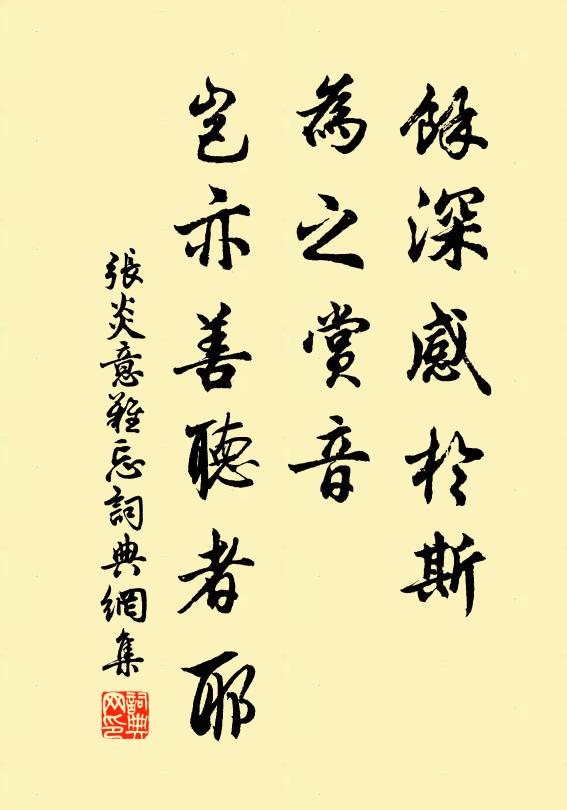 餘深感於斯
為之賞音
豈亦善聽者耶
張炎意難忘詞典網集
詞典网印